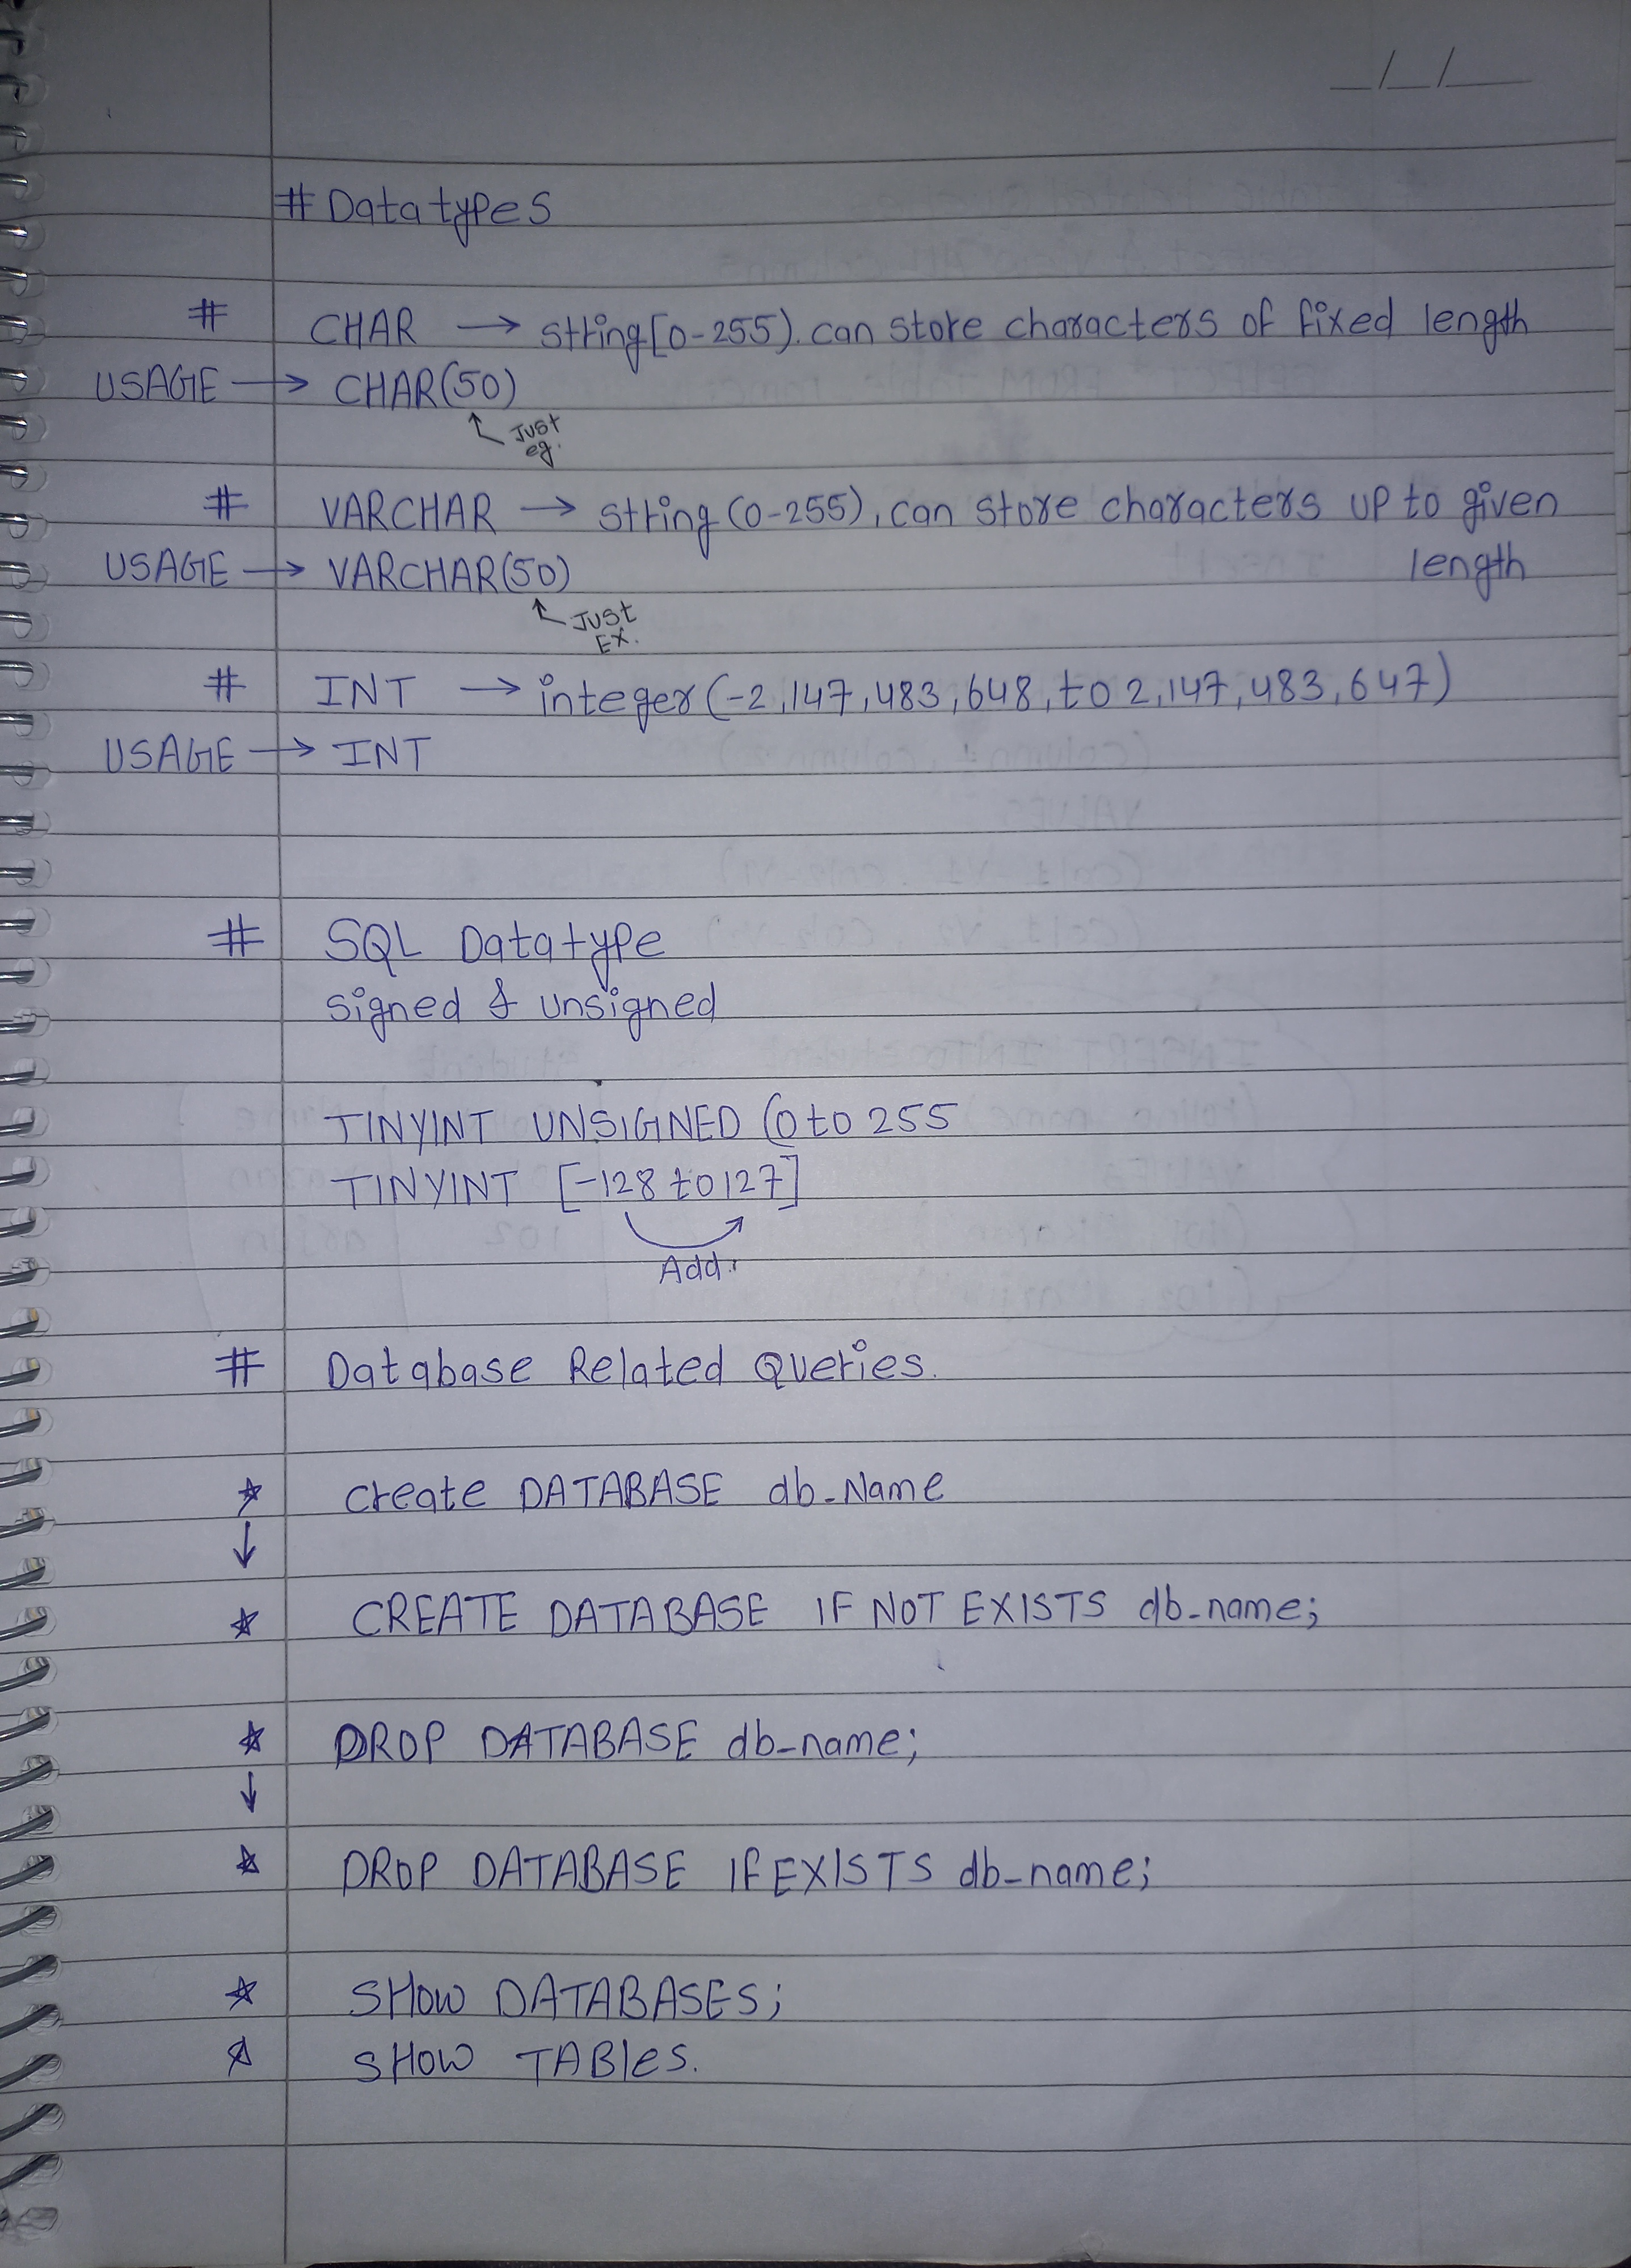 _/_/_
# Datatypes
# CHAR → string[0-255). can store characters of fixed length
USAGE → CHAR(50)
↑ Just
eg.
# VARCHAR → string (0-255), can store characters up to given
length
USAGE → VARCHAR(50)
↑ Just
Ex.
# INT → integer (-2,147,483,648, to 2,147,483,647)
USAGE → INT
# SQL Datatype
signed & unsigned
TINYINT UNSIGNED (0 to 255
TINYINT [-128 to 127]
Add.
# Database Related Queries.
☆ create DATABASE db_Name
↓
☆ CREATE DATABASE IF NOT EXISTS db_name;
☆ DROP DATABASE db_name;
↓
☆ DROP DATABASE IF EXISTS db_name;
☆ SHOW DATABASES;
☆ SHOW TABles.